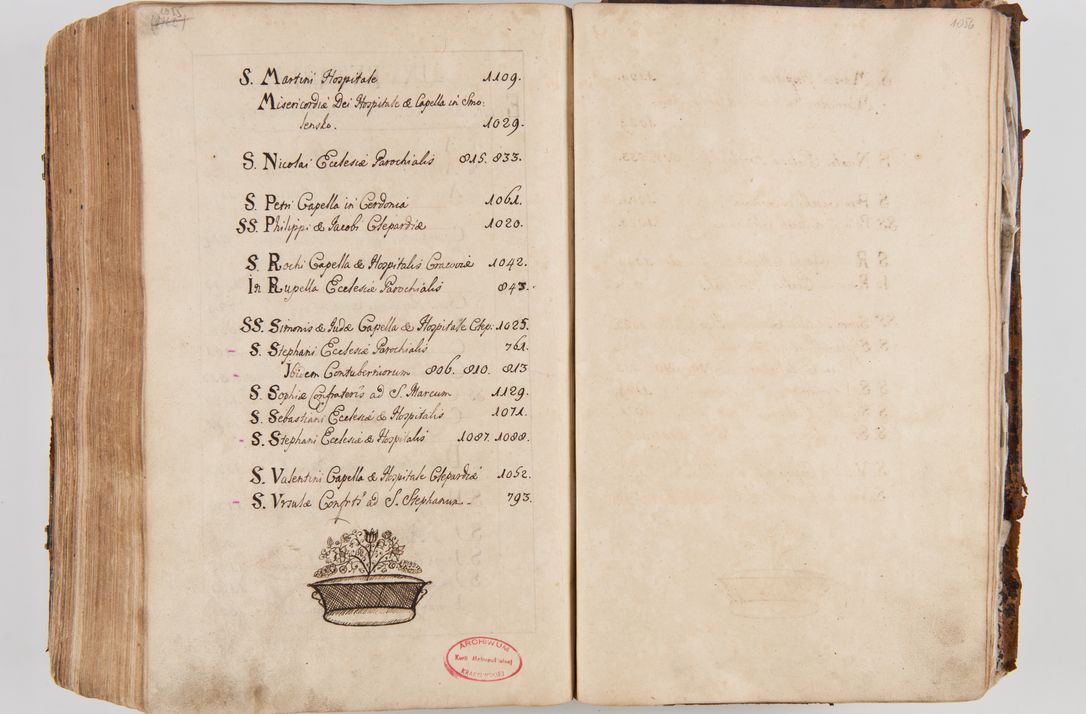 S. Martini Hospitale 1109.
Misericordiæ Dei Hospitale & Capella in Smo:
lensko. 1029.
S. Nicolai Ecclesiæ Parochialis 815. 833.
S. Petri Capella in Cerdonia 1061.
SS. Philippi & Jacobi Clepardiæ 1020.
S. Rochi Capella & Hospitalis Cracoviæ 1042.
In Rupella Ecclesiæ Parochialis 843.
SS. Simonis & Judæ Capella & Hospitale Clep: 1025.
S. Stephani Ecclesiæ Parochialis 761.
Ibidem Contuberniorum 806. 810. 813
S. Sophiæ Confraterīs ad S. Marcum 1129.
S. Sebastiani Ecclesiæ & Hospitalis 1071.
S. Stephani Ecclesiæ & Hospitalis 1087. 1088.
S. Valentini Capella & Hospitale Clepardiæ 1052.
S. Vrsulæ Confrts ad S. Stephanum 793.
ARCHIWUM
Kurii Metropolitalnej
KRAKOWSKIEJ
1056